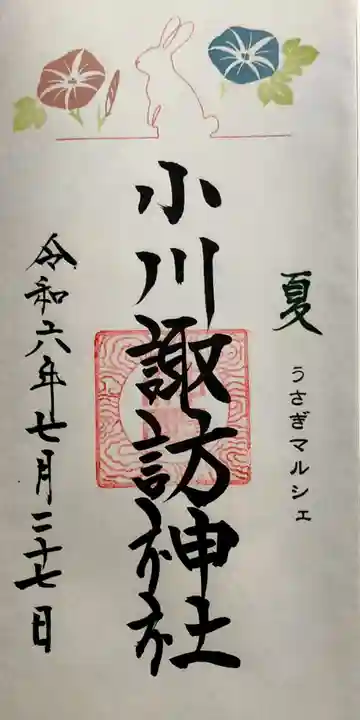 夏
うさぎマルシェ
小川諏訪神社
令和六年七月二十七日